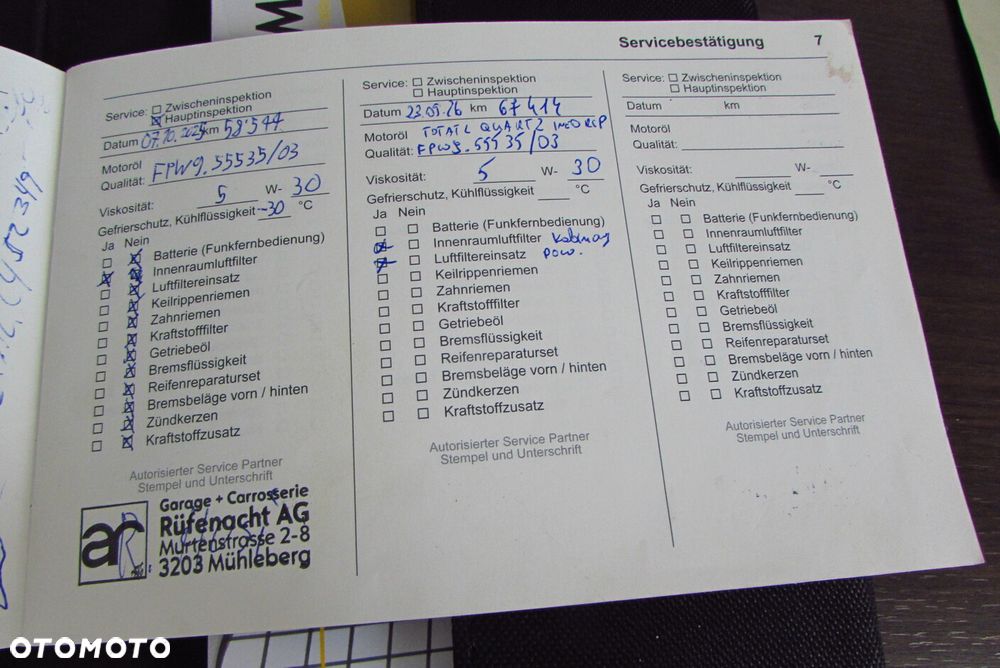 M
Servicebestätigung 7
Service: Zwischeninspektion
Hauptinspektion
Datum 07.10.2025 km 58'544
Motoröl
Qualität: FPW9.55535/03
Viskosität: 5 W- 30
Gefrierschutz, Kühlflüssigkeit -30 °C
Ja Nein
Batterie (Funkfernbedienung)
Innenraumluftfilter
Luftfiltereinsatz
Keilrippenriemen
Zahnriemen
Kraftstofffilter
Getriebeöl
Bremsflüssigkeit
Reifenreparaturset
Bremsbeläge vorn / hinten
Zündkerzen
Kraftstoffzusatz
Autorisierter Service Partner
Stempel und Unterschrift
ar
Garage + Carrosserie
Rüfenacht AG
Murtenstrasse 2-8
3203 Mühleberg
Service: Zwischeninspektion
Hauptinspektion
Datum 23.09.26 km 67414
Motoröl TOTAL QUARTZ INEO RCP
Qualität: FPW9.55535/03
Viskosität: 5 W- 30
Gefrierschutz, Kühlflüssigkeit °C
Ja Nein
Batterie (Funkfernbedienung)
Innenraumluftfilter
Luftfiltereinsatz pow.
Keilrippenriemen
Zahnriemen
Kraftstofffilter
Getriebeöl
Bremsflüssigkeit
Reifenreparaturset
Bremsbeläge vorn / hinten
Zündkerzen
Kraftstoffzusatz
Autorisierter Service Partner
Stempel und Unterschrift
Service: Zwischeninspektion
Hauptinspektion
Datum km
Motoröl
Qualität:
Viskosität: W-
Gefrierschutz, Kühlflüssigkeit °C
Ja Nein
Batterie (Funkfernbedienung)
Innenraumluftfilter
Luftfiltereinsatz
Keilrippenriemen
Zahnriemen
Kraftstofffilter
Getriebeöl
Bremsflüssigkeit
Reifenreparaturset
Bremsbeläge vorn / hinten
Zündkerzen
Kraftstoffzusatz
Autorisierter Service Partner
Stempel und Unterschrift
OTOMOTO